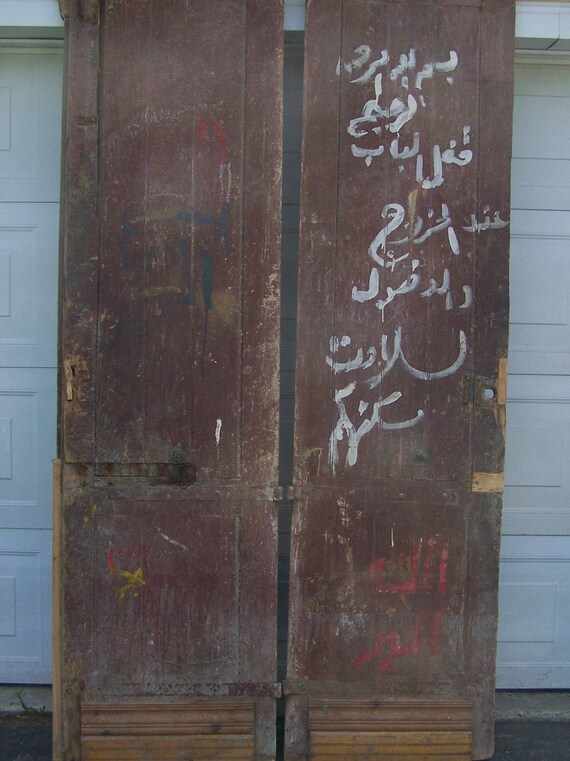 بسم الله الرحمن
الرحيم
قفل الباب
عند الخروج
والدخول
لسلامت
سكنهم
الله